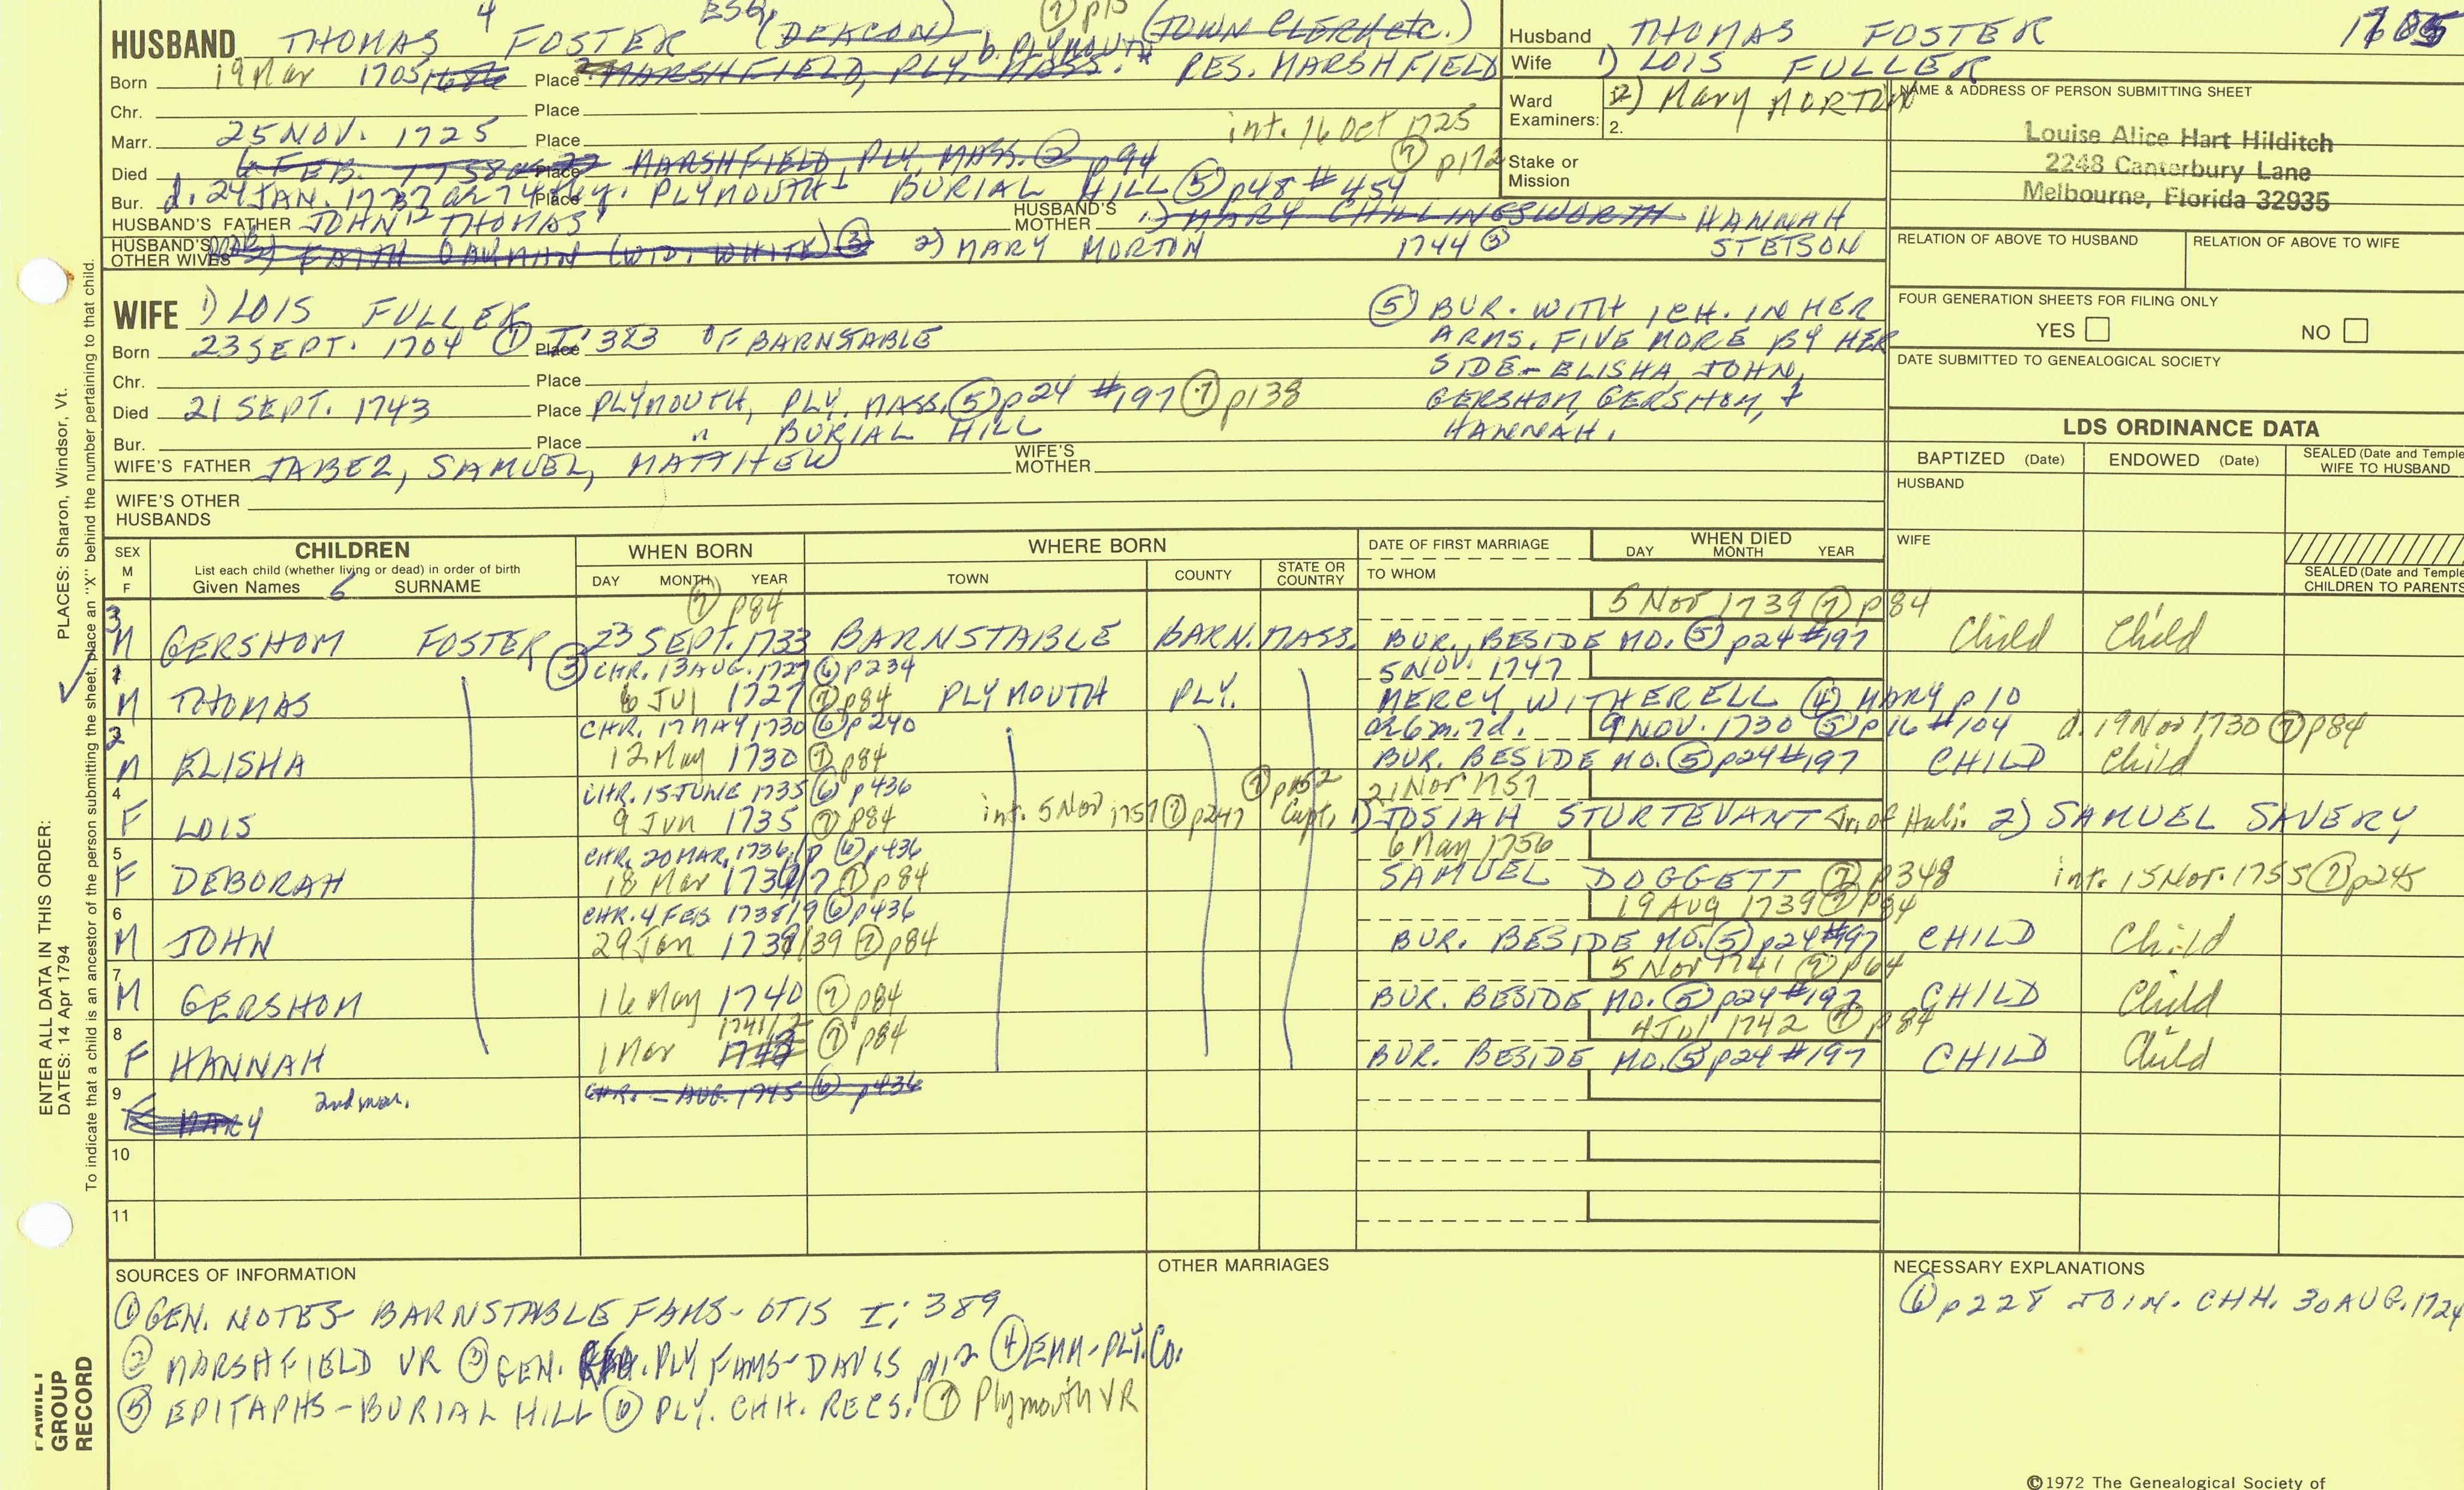 4 ESQ. (7) p15
HUSBAND THOMAS FOSTER (DEACON) b. PLYMOUTH (TOWN CLERK etc.)
Born 19 Mar 1705/1686 Place MARSHFIELD, PLY. MASS. * RES. MARSHFIELD
Chr. Place
Marr. 25 NOV. 1725 Place int. 16 Oct 1725 (7) p172
Died 6 FEB. 1758 Place MARSHFIELD, PLY, MASS. (2) p94
Bur. d. 24 JAN. 1777 ae 74 Place PLYMOUTH BURIAL HILL (5) p48 #454
HUSBAND'S FATHER JOHN THOMAS HUSBAND'S MOTHER 1) MARY CHILLINGSWORTH HANNAH STETSON
HUSBAND'S OTHER WIVES FAITH OAKMAN (WID. WHITE) (3) 2) MARY MORTON 1744 (3)
Husband THOMAS FOSTER 1705
Wife 1) LOIS FULLER
Ward Examiners: 2) Mary MORTON
2.
Stake or Mission
NAME & ADDRESS OF PERSON SUBMITTING SHEET
Louise Alice Hart Hilditch
2248 Canterbury Lane
Melbourne, Florida 32935
RELATION OF ABOVE TO HUSBAND RELATION OF ABOVE TO WIFE
FOUR GENERATION SHEETS FOR FILING ONLY
YES NO
DATE SUBMITTED TO GENEALOGICAL SOCIETY
WIFE 1) LOIS FULLER
Born 23 SEPT. 1704 (1) Place I: 383 OF BARNSTABLE
Chr. Place
Died 21 SEPT. 1743 Place PLYMOUTH, PLY. MASS. (5) p24 #197 (7) p138
Bur. Place " BURIAL HILL
WIFE'S FATHER JABEZ, SAMUEL, MATTHEW WIFE'S MOTHER
WIFE'S OTHER HUSBANDS
(5) BUR. WITH 1 CH. IN HER
ARMS. FIVE MORE BY HER
SIDE - ELISHA, JOHN,
GERSHOM, GERSHOM, &
HANNAH.
LDS ORDINANCE DATA
BAPTIZED (Date) ENDOWED (Date) SEALED (Date and Temple WIFE TO HUSBAND
HUSBAND
WIFE
SEALED (Date and Temple CHILDREN TO PARENTS
SEX M F
CHILDREN
List each child (whether living or dead) in order of birth
Given Names 6 SURNAME
WHEN BORN
DAY MONTH YEAR
WHERE BORN
TOWN COUNTY STATE OR COUNTRY
DATE OF FIRST MARRIAGE
TO WHOM
WHEN DIED
DAY MONTH YEAR
3 (7) p84 5 Nov 1739 (7) p84
M GERSHOM FOSTER 23 SEPT. 1733 BARNSTABLE BARN. MASS. BUR. BESIDE MO. (5) p24 #197 Child Child
1 (3) CHR. 13 AUG. 1727 (6) p234 5 NOV. 1747
M THOMAS 6 JUL 1727 (7) p84 PLYMOUTH PLY. MERCY WITHERELL (4) MARY p10
2 CHR. 17 MAY 1730 (6) p240 ae 6m. 7d. 9 NOV. 1730 (5) p16 #104 d. 19 Nov 1730 (7) p84
M ELISHA 12 May 1730 (7) p84 BUR. BESIDE MO. (5) p24 #197 CHILD Child
4 CHR. 15 JUNE 1735 (6) p436 (7) p152 21 Nov 1751
F LOIS 9 Jun 1735 (7) p84 int. 5 Nov 1757 (7) p247 Capt. 1) JOSIAH STURTEVANT Jr. of Hali. 2) SAMUEL SAVERY
5 CHR. 20 MAR. 1736/7 (6) p436 6 May 1756
F DEBORAH 18 Mar 1736/7 (7) p84 SAMUEL DOGGETT (7) p348 int. 15 Nov. 1755 (7) p245
6 CHR. 4 FEB 1738/9 (6) p436 19 Aug 1739 (7) p84
M JOHN 29 Jan 1738/39 (7) p84 BUR. BESIDE MO. (5) p24 #197 CHILD Child
7 5 Nov 1741 (7) p84
M GERSHOM 16 May 1740 (7) p84 BUR. BESIDE MO. (5) p24 #197 CHILD Child
8 1741/2 4 Jul 1742 (7) p84
F HANNAH 1 Mar 1742 (7) p84 BUR. BESIDE MO. (5) p24 #197 CHILD Child
9 CHR. - AUG. 1745 (6) p436
F MARY 2nd mar.
10
11
SOURCES OF INFORMATION
(1) GEN. NOTES - BARNSTABLE FAMS - OTIS I: 389
(2) MARSHFIELD VR (3) GEN. PLY FAMS - DAVIS p112 (4) EMM - PLY. Co.
(5) EPITAPHS - BURIAL HILL (6) PLY. CHH. RECS. (7) Plymouth VR
OTHER MARRIAGES
NECESSARY EXPLANATIONS
(6) p228 JOIN. CHH. 30 AUG. 1724
©1972 The Genealogical Society of
PLACES: Sharon, Windsor, Vt.
ENTER ALL DATA IN THIS ORDER:
DATES: 14 Apr 1794
To indicate that a child is an ancestor of the person submitting the sheet, place an "X" behind the number pertaining to that child.
FAMILY
GROUP
RECORD